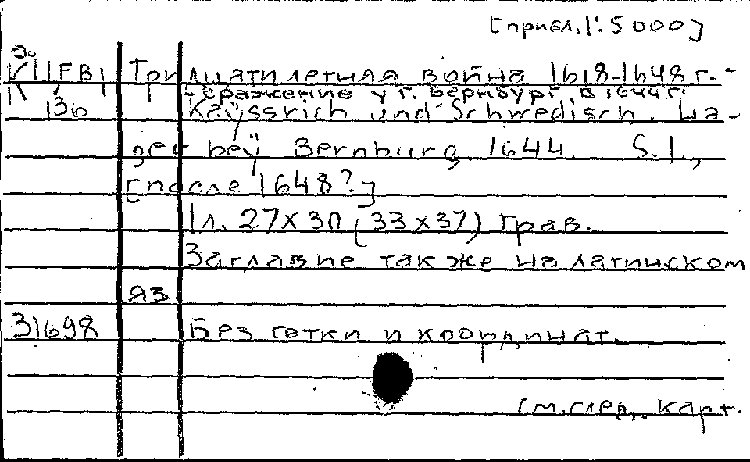 [прибл. 1:5000]
Тридцатилетняя война 1618-1648 г. -
- Сражение у г. Бернбург в 1644 г.
13б Kayssrich und Schwedisch. La-
ger beÿ Bernburg, 1644. S.l.,
[после 1648?]
1 л. 27х30 (33х37) Грав.
Заглавие также на латинском
яз
31698 Без сетки и координат.
См. след. карт.